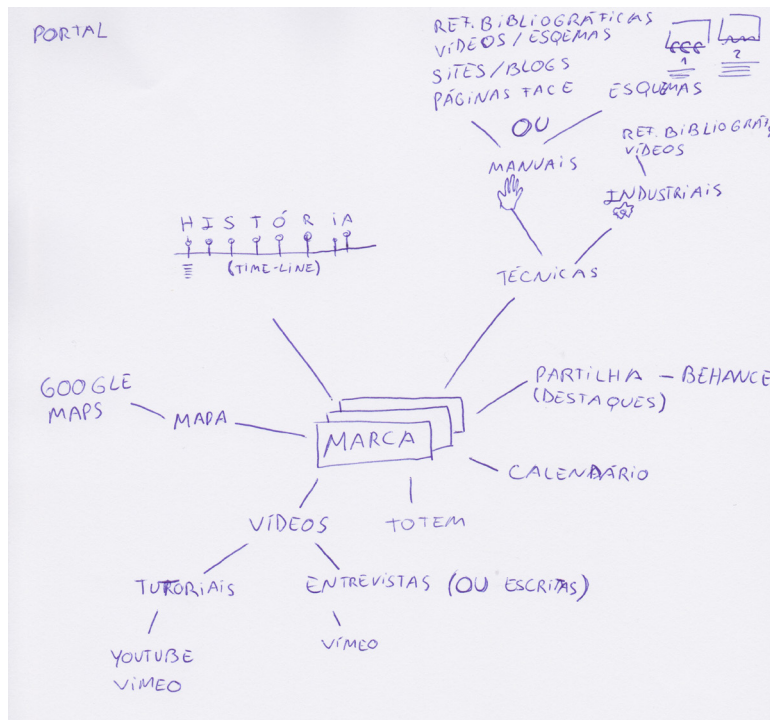 PORTAL
REF. BIBLIOGRÁFICAS
VÍDEOS / ESQUEMAS
SITES/BLOGS
PÁGINAS FACE
1
2
ESQUEMAS
OU
REF. BIBLIOGRÁF
VÍDEOS
MANUAIS
INDUSTRIAIS
HISTÓRiA
(TIME-LINE)
TÉCNICAS
GOOGLE
MAPS
MAPA
MARCA
PARTILHA — BEHANCE
(DESTAQUES)
CALENDÁRIO
VÍDEOS
TOTEM
TUTORIAIS
ENTREVISTAS (OU ESCRITAS)
YOUTUBE
VIMEO
VÍMEO